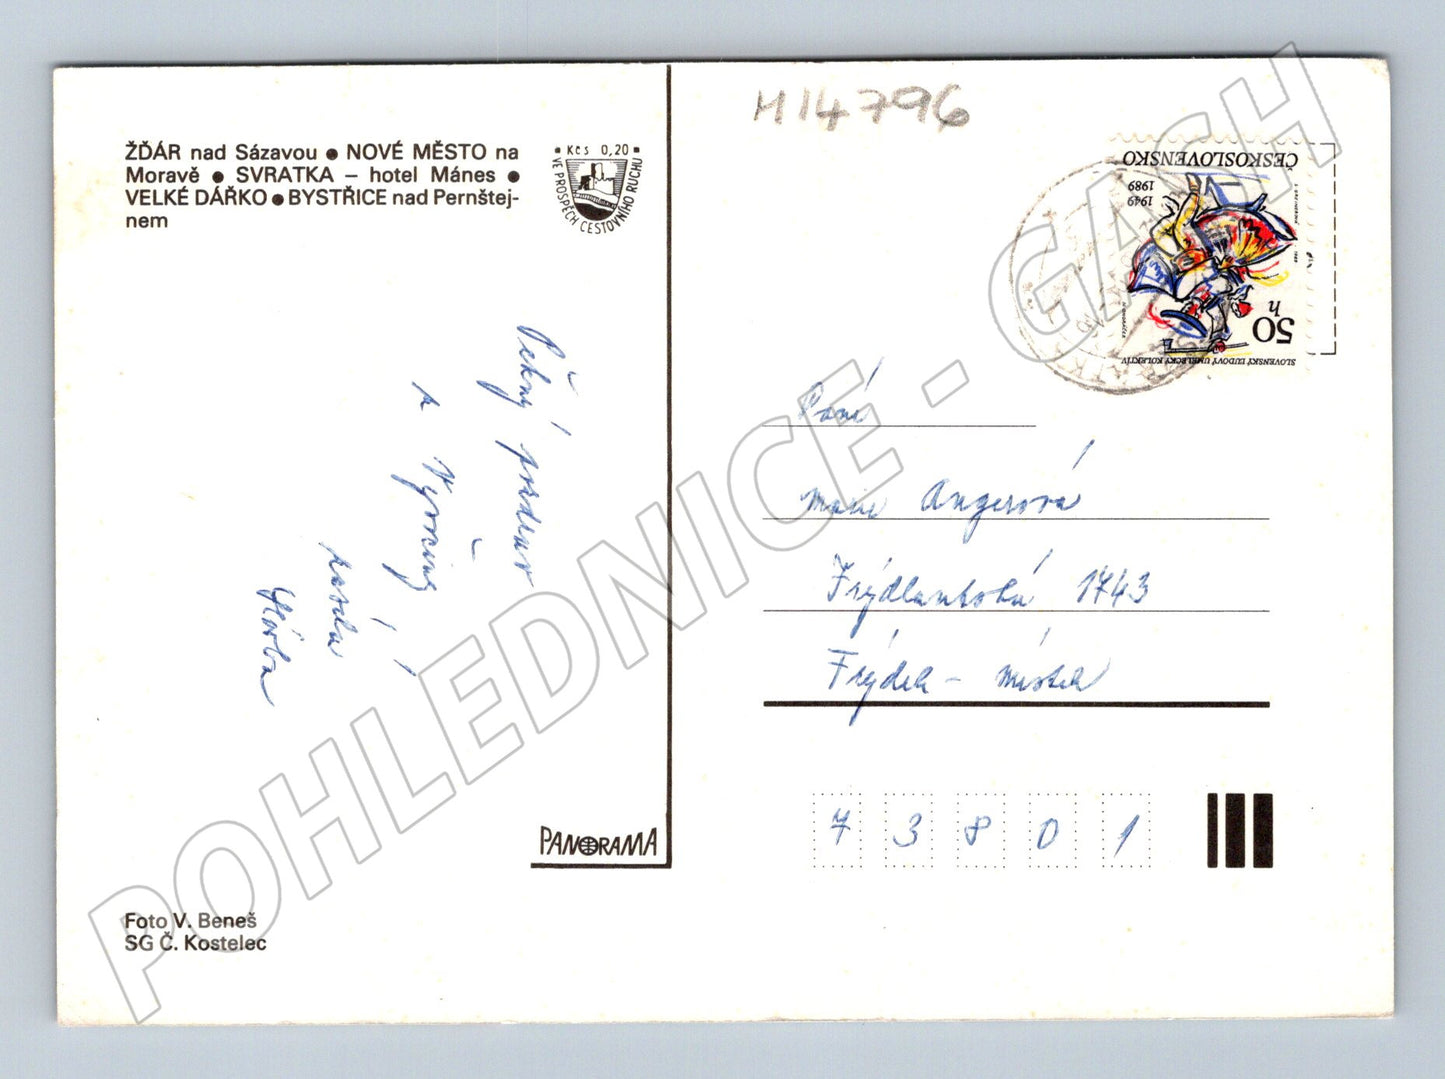 H14796
ŽĎÁR nad Sázavou ● NOVÉ MĚSTO na
Moravě ● SVRATKA – hotel Mánes ●
VELKÉ DÁŘKO ● BYSTŘICE nad Pernštej-
nem
Kčs 0,20
VE PROSPĚCH CESTOVNÍHO RUCHU
ČESKOSLOVENSKO
1949
1989
50
h
SLOVENSKÝ ĽUDOVÝ UMELECKÝ KOLEKTÍV
Pěkný pozdrav
z Vysočiny
posílá
Paní
Marie Angerová
Frýdlantská 1743
Frýdek - Místek
73801
PANORAMA
Foto V. Beneš
SG Č. Kostelec
POHLEDNICE - GASH